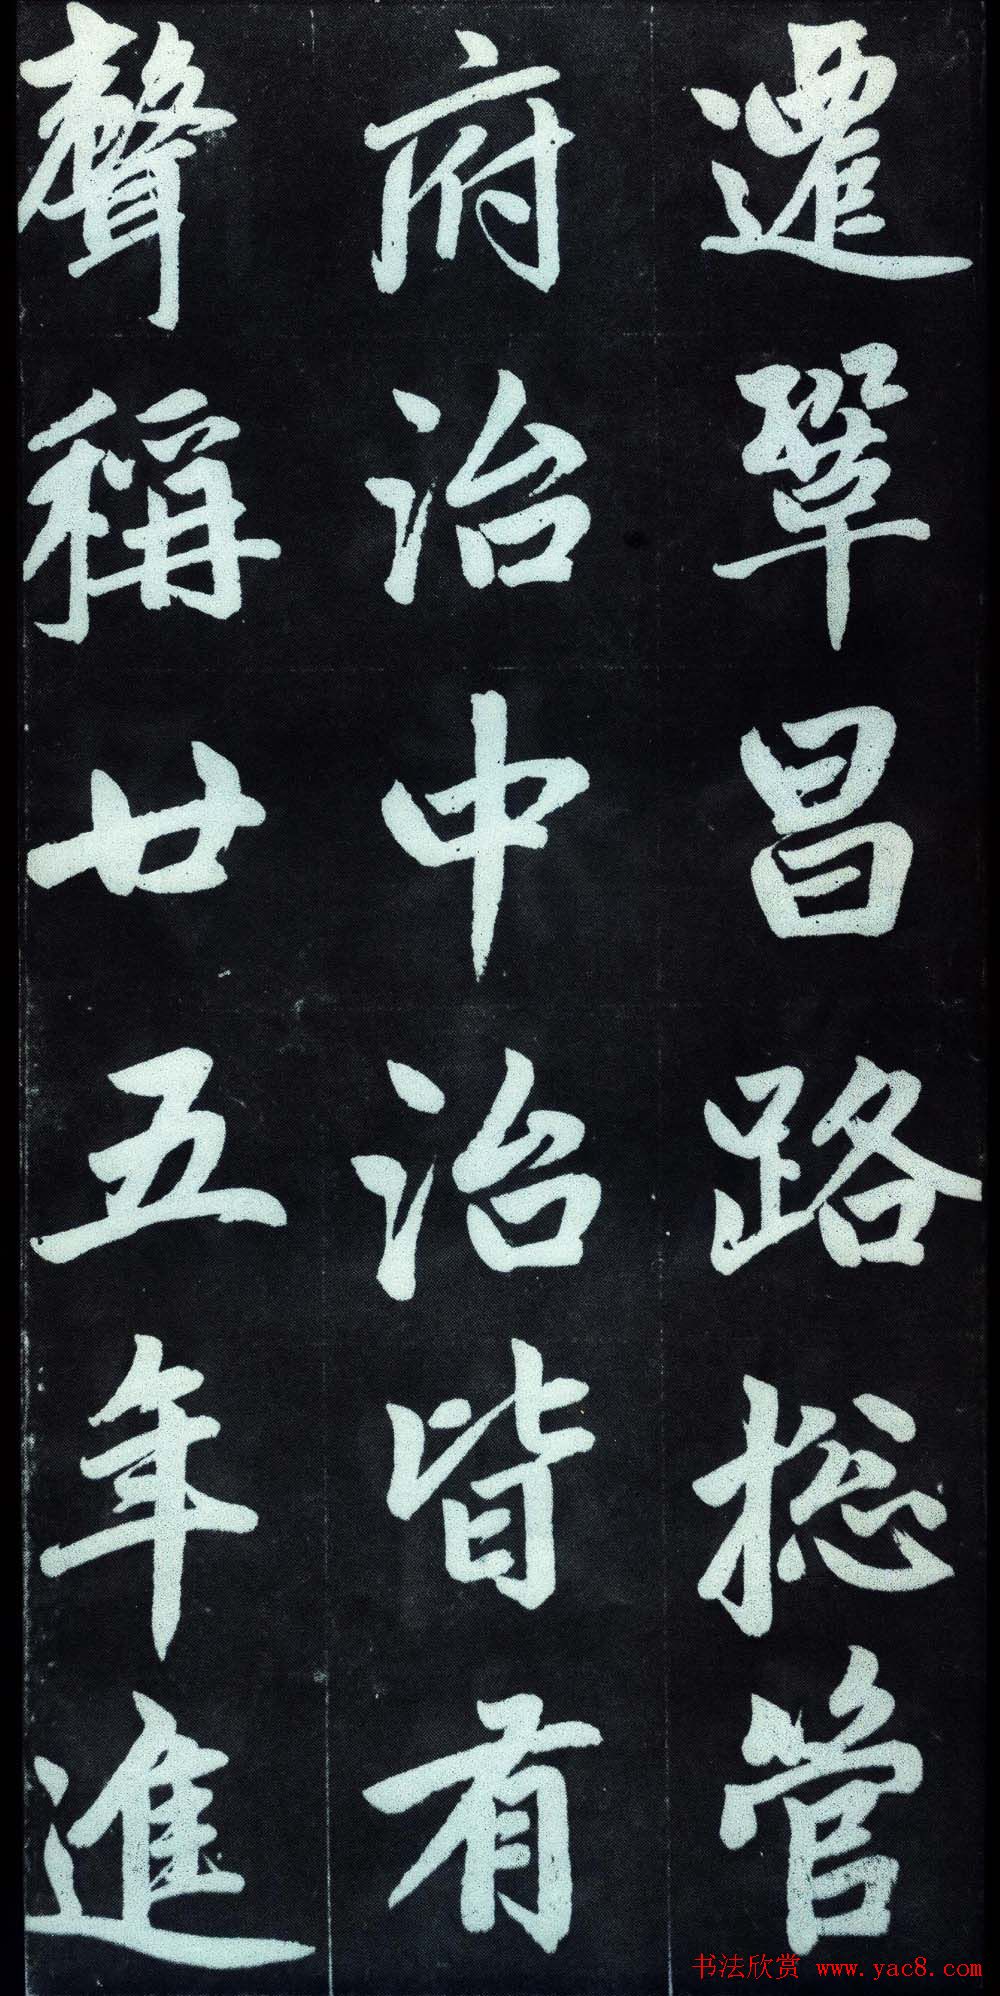 遷鞏昌路捴管
府治中治皆有
聲稱廿五年進
书法欣赏 www.yac8.com